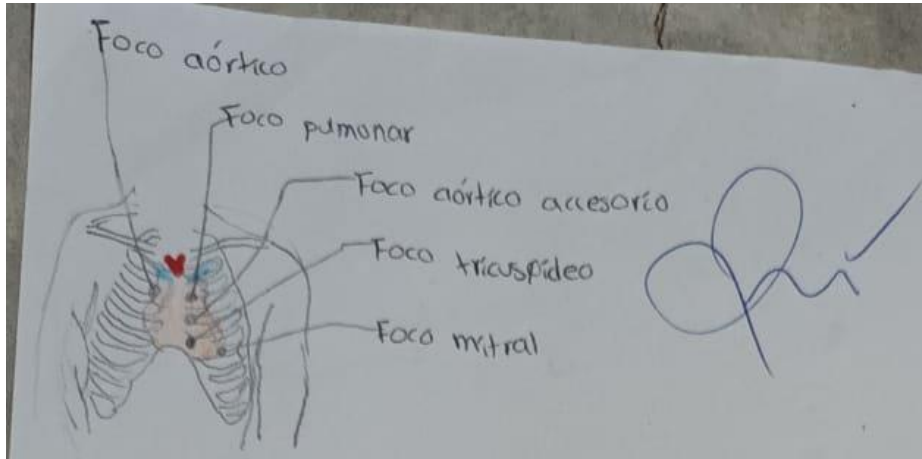 Foco aórtico
Foco pulmonar
Foco aórtico accesorio
Foco tricuspídeo
Foco mitral